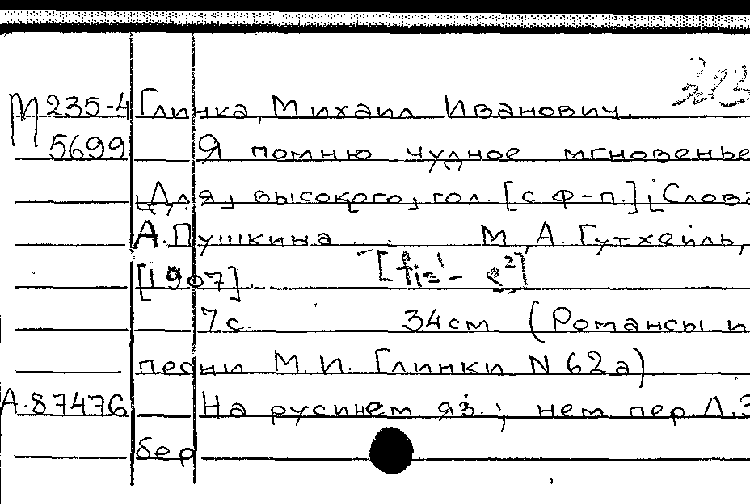 М 235-4 Глинка, Михаил Иванович.
5699 Я помню чудное мгновенье
Для, высокого, гол. [с ф-п.] [Слова
А. Пушкина М, А. Гутхейль,
[1907]. [fis¹- e²]
7 с. 34 см (Романсы и
песни М. И. Глинки N 62а)
А.87476 На русском яз.; нем пер Л.
бер